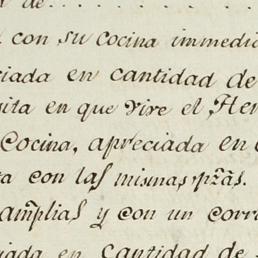 de. . . . . . . . .
con su cocina immedia
ciada en cantidad de
sita en que vive el Her
Cocina, apreciada en
ta con las mismas pzãs.
amp̃lias y con un corr
iada en Cantidad de